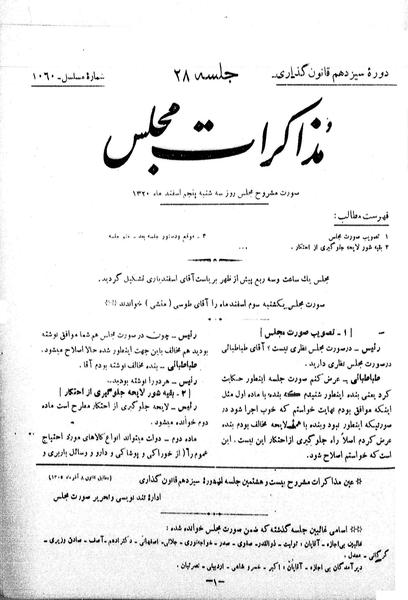 دورهٔ سیزدهم قانون گذاری
جلسه ۲۸
شمارهٔ مسلسل - ۱۰۶۰
مذاکرات مجلس
صورت مشروح مجلس روز سه شنبه پنجم اسفند ماه ۱۳۲۰
فهرست مطالب:
۱ تصویب صورت مجلس
۲ بقیه شور لایحه جلوگیری از احتکار
۳ - موقع و دستور جلسه بعد - ختم جلسه
مجلس یک ساعت و سه ربع پیش از ظهر بریاست آقای اسفندیاری تشکیل گردید.
صورت مجلس یکشنبه سوم اسفند ماه را آقای طوسی (منشی) خواندند
[ ۱ - تصویب صورت مجلس ]
رئیس - در صورت مجلس نظری نیست؟ آقای طباطبائی
طباطبائی - عرض کنم صورت جلسه اینطور حکایت
کرد یعنی بنده اینطور شنیدم که بنده با ماده اول مثل
اینکه موافق بودم نهایت خواستم که خوب اجرا شود در
صورتیکه اینطور نبود و بنده با همه لایحه مخالف بودم بنده
عرض کردم اصلا راه جلوگیری از احتکار این نیست. این
است که خواستم اصلاح شود.
رئیس - چون در صورت مجلس هم شما موافق نوشته
بودید هم مخالف باین جهت اینطور شده حالا اصلاح میشود.
طباطبائی - بنده مخالف نوشته بودم آقا.
رئیس - هر دو را نوشته بودید.
[ ۲ - بقیه شور لایحه جلوگیری از احتکار ]
رئیس - لایحه جلوگیری از احتکار مطرح است ماده
دوم خوانده میشود.
ماده دوم - دولت میتواند انواع کالاهای مورد احتیاج
عموم را (از خوراکی و پوشاکی و دارو و وسائل باربری و
عین مذاکرات مشروح بیست و هشتمین جلسه از دوره سیزدهم قانون گذاری
(مطابق قانون ۸ آذر ماه ۱۳۰۵)
اداره تند نویسی و تحریر صورت مجلس
اسامی غائبین جلسه گذشته که ضمن صورت مجلس خوانده شده:
غائبین بی اجازه - آقایان: تولیت - ذوالقدر - صاوی - صدر - خواجه نوری - جلالی - اصفهانی - دکتر ادهم - آصف - صادق وزیری -
گرگانی - معدل.
دیر آمدگان بی اجازه - آقایان: اکبر - خسرو شاهی - اردبیلی - نصرتیان.
- ۱ -